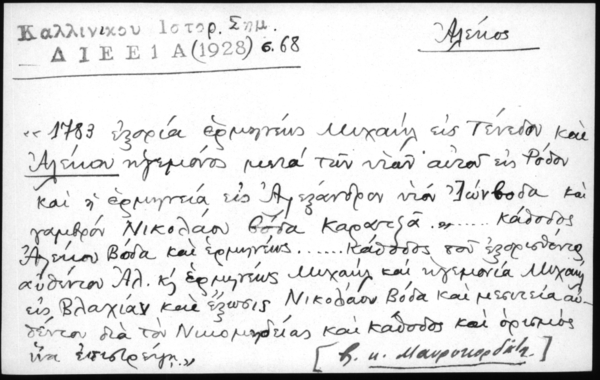 Καλλινίκου Ιστορ. Σημ.
ΔΙΕΕ 1 Α (1928) σ. 68
Ἀλέκος
«1783 ἐξορία ἑρμηνέως Μιχαήλ εἰς Τένεδον καὶ
Ἀλέκου ἡγεμόνος μετά τῶν υἱῶν αὐτοῦ εἰς Ρόδον
καὶ ἡ ἑρμηνεία εἰς Ἀλέξανδρον υἱὸν Ἰωάνβοδα καὶ
γαμβρὸν Νικολάου βόδα Καρατζᾶ ... κάθοδος
Ἀλέκου Βόδα καὶ ἑρμηνέως ...... κάθοδος τοῦ ἐξορισθέντος
αὐθέντου Ἀλ. κ' ἑρμηνέως Μιχαήλ καὶ ἡγεμονία Μιχαήλ
εἰς Βλαχίαν καὶ ἔξωσις Νικολάου Βόδα καὶ μεσιτεία αὐ-
θέντου διὰ τὸν Νικομηδείας καὶ κάθοδος καὶ ὁρισμός
ἵνα ἐπιστρέψῃ..»
[β. κ. Μαυροκορδάτ.]